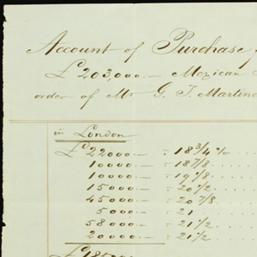 Account of Purchase
£203,000.— Mexican
order of Mr G. T. Martine
in London
£22000— = 18 3/4 %
10000— = 18 7/8
10000— = 19 7/8
15000— = 20 1/2
45000— = 20 7/8
5000— = 21
58000— = 21 1/2
20000— = 21 1/2
£185000